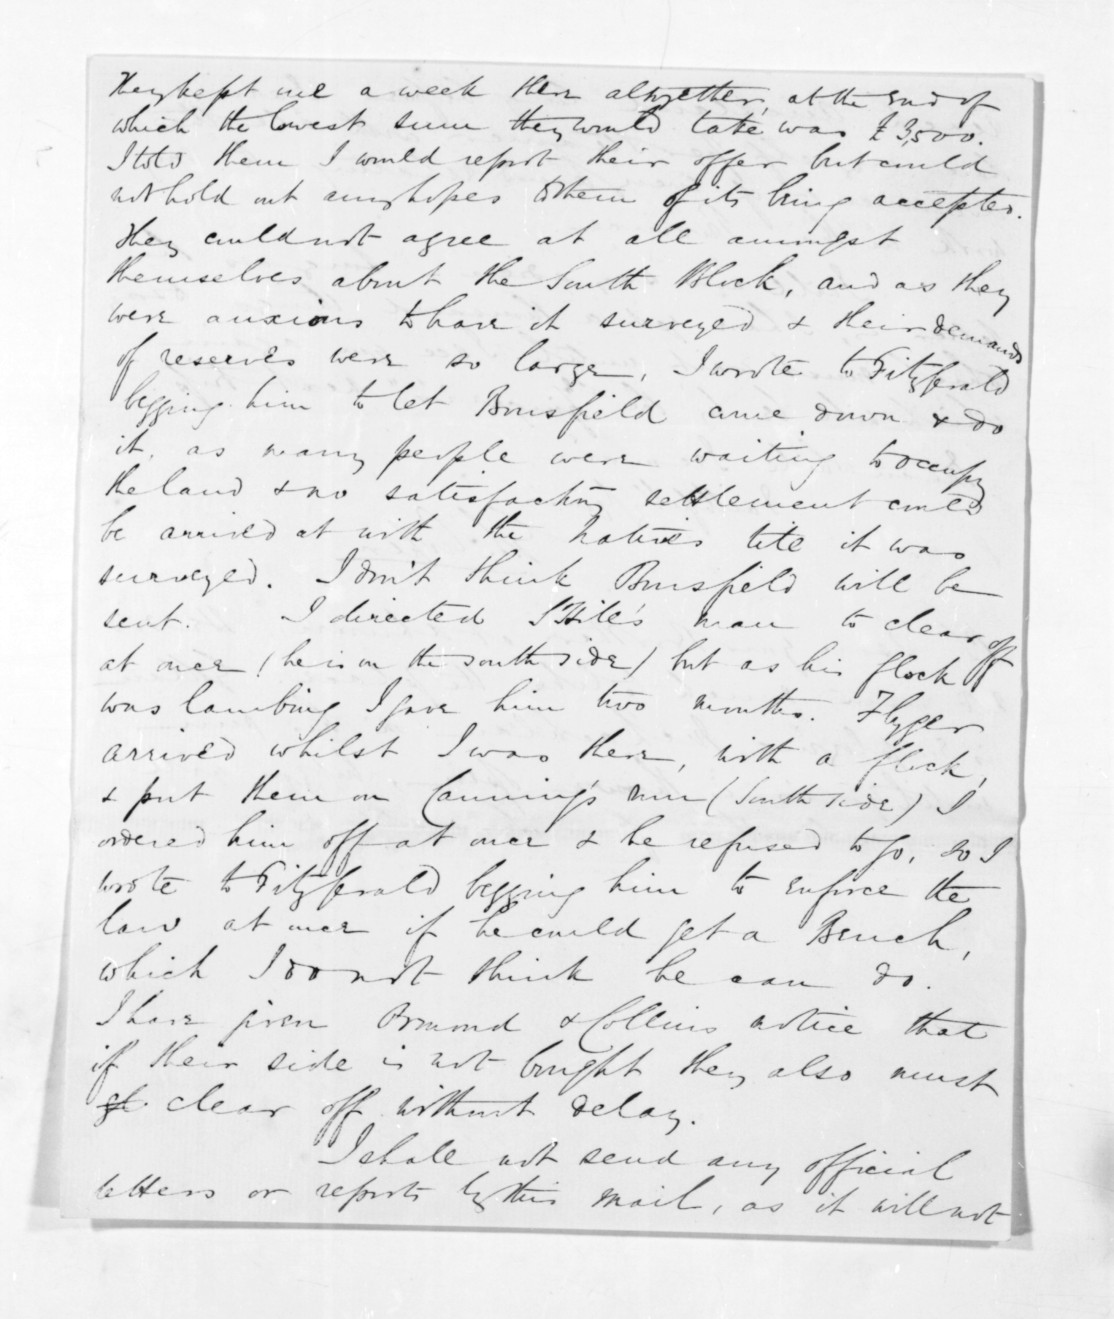 They kept me a week there altogether, at the end of
which the lowest sum they would take was £3,500.
I told them I would report their offer but could
not hold out any hopes to them of its being accepted.
They could not agree at all amongst
themselves about the South Block, and as they
were anxious to have it surveyed & their demands
of reserves were so large, I wrote to Fitzgerald
begging him to let Bousfield come down & do
it, as many people were waiting to occupy
the land & no satisfactory settlement could
be arrived at with the Natives till it was
surveyed. I don't think Bousfield will be
sent. I directed St Hill's man to clear off
at once (he is on the south side) but as his flock
was lambing I gave him two months. Flyger
arrived whilst I was there, with a flock,
& put them on Canning's run (South side) I
ordered him off at once & he refused to go, so I
wrote to Fitzgerald begging him to enforce the
law at once if he could get a Bench,
which I do not think he can do.
I have given Ormond & Collins notice that
if their side is not bought they also must
clear off without delay.
I shall not send any official
letters or reports by this mail, as it will not